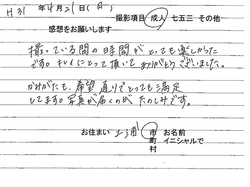 H31年4月21日(月)
撮影項目 成人 七五三 その他
感想をお願いします
撮っている間の時間がとっても楽しかった
です。キレイにとって頂いてありがとうございました。
かみがたも、希望通りでとっても満足
してます。写真が届くのがたのしみです。
お住まい 市 お名前
町 イニシャルで
村